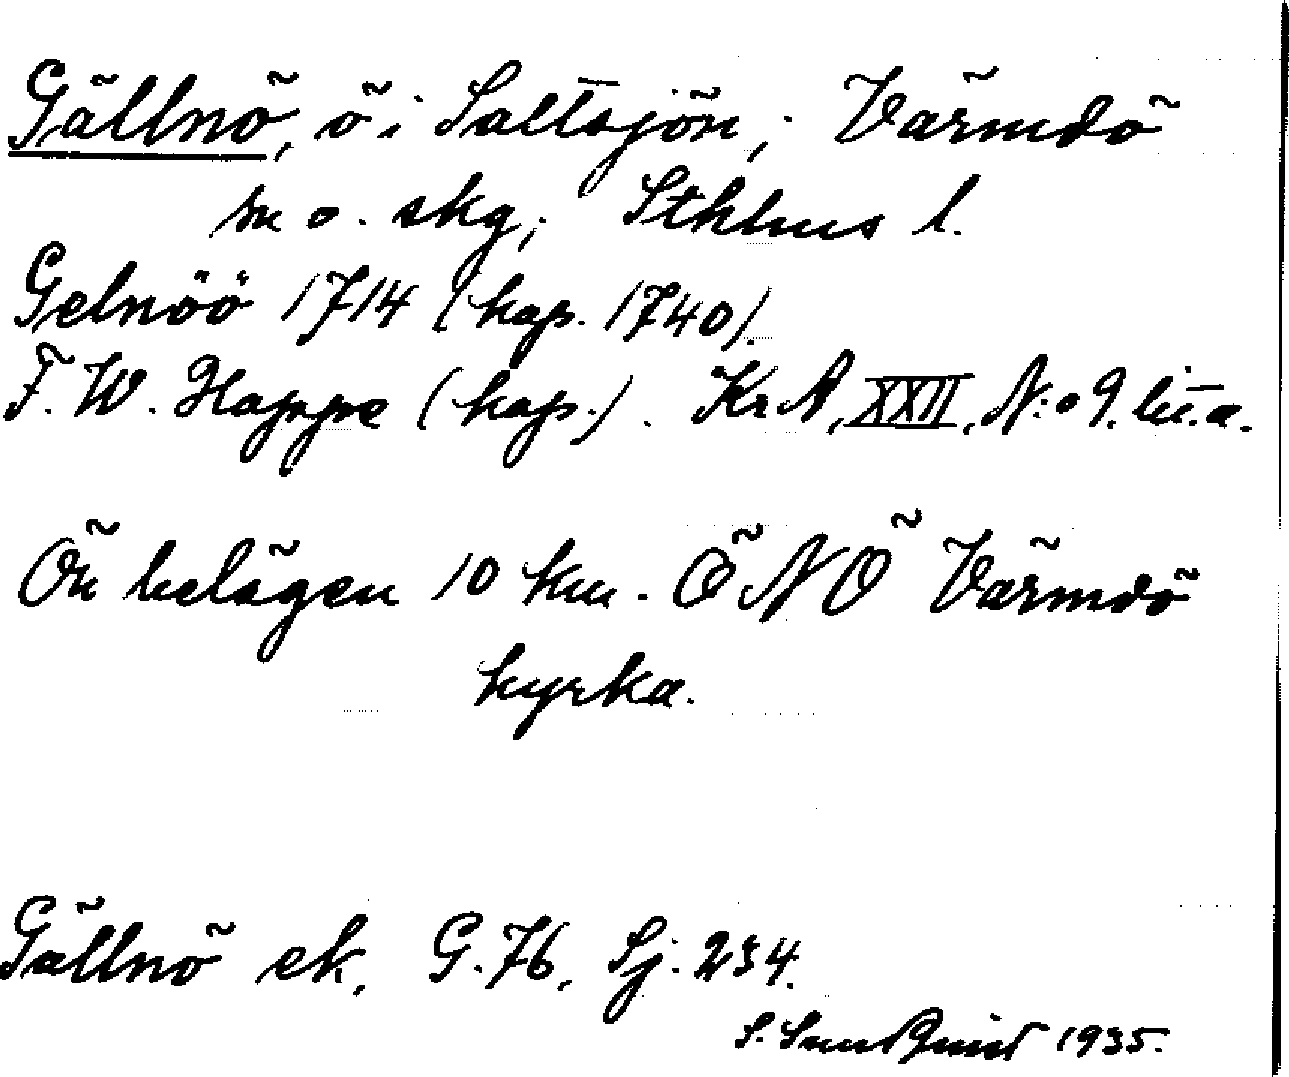 Gällnö, ö i Saltsjön, Värmdö
sn o. skg, Sthlms l.
Gelnöö 1714 (kop. 1740).
F. W. Happe (kop.). KrA, XXII, N:o 9. lit. a.
Ön belägen 10 km. ÖNÖ Värmdö
kyrka.
Gällnö ek. G. 76. Sj. 234.
S. Sundquist 1935.